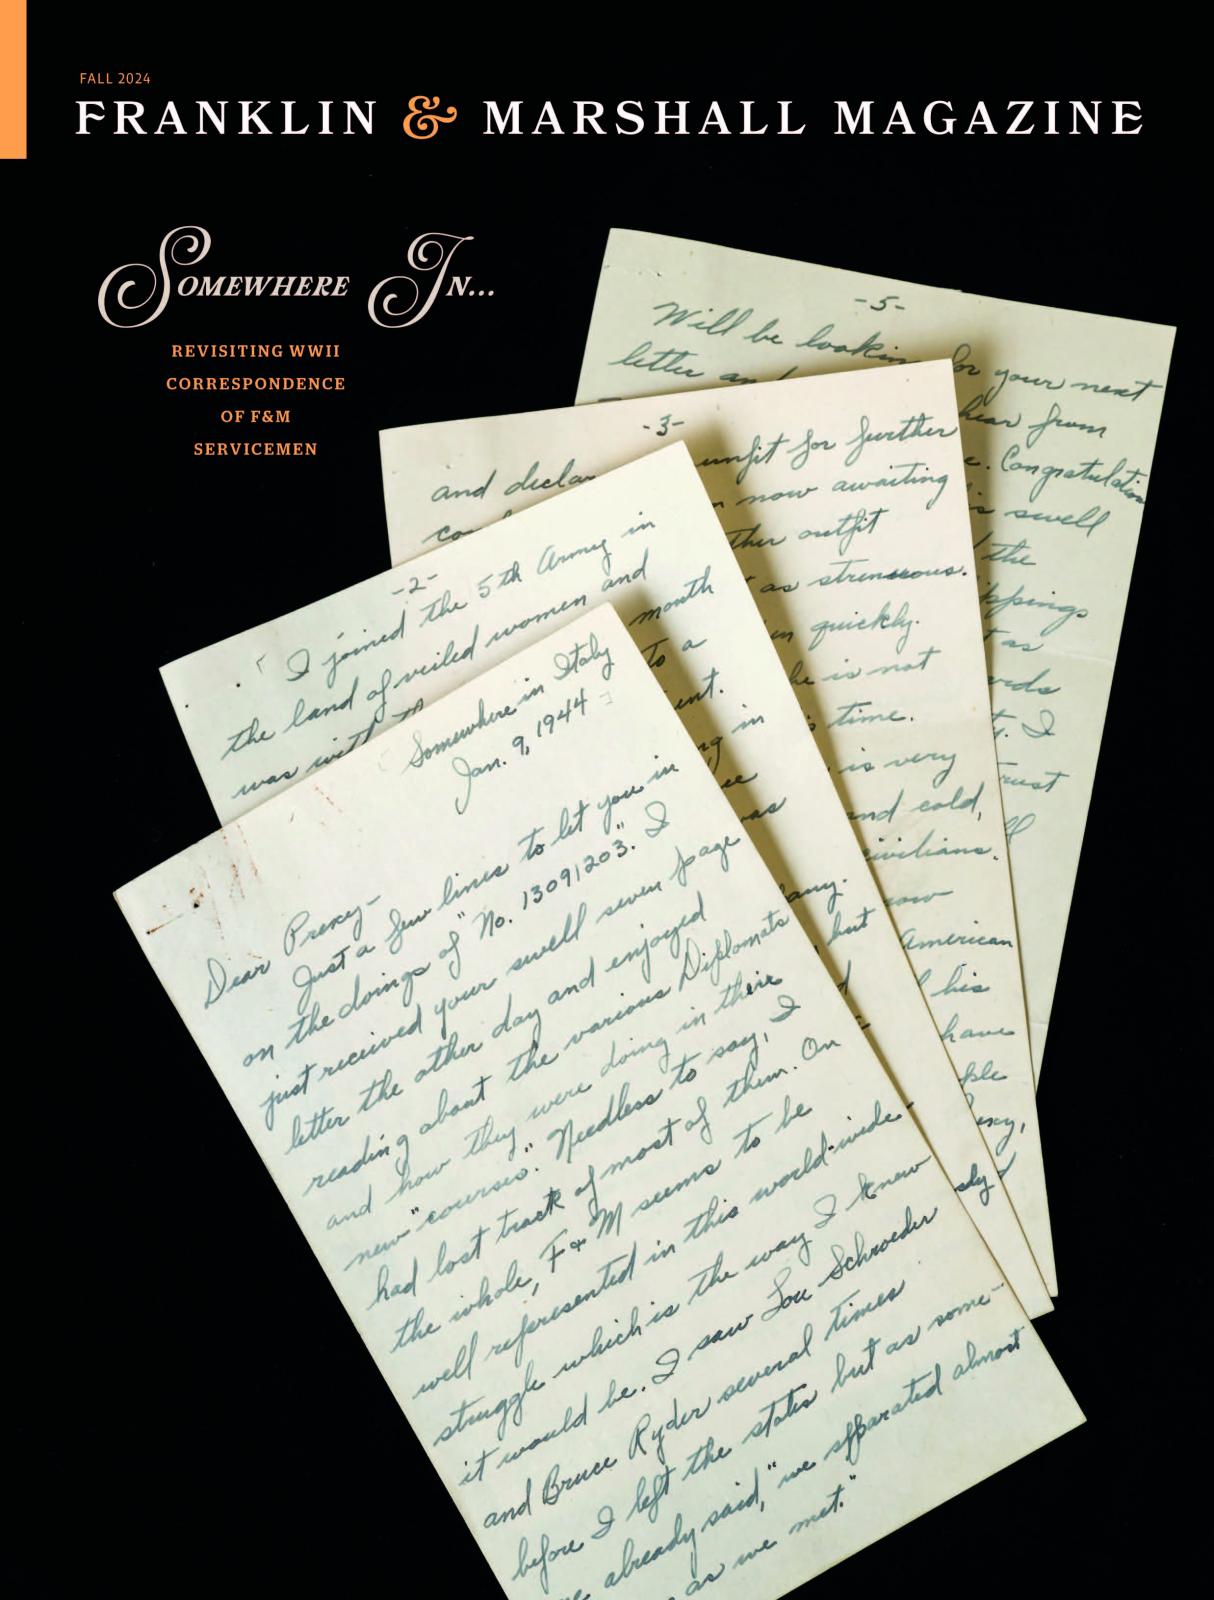 FALL 2024
FRANKLIN & MARSHALL MAGAZINE
SOMEWHERE IN...
REVISITING WWII
CORRESPONDENCE
OF F&M
SERVICEMEN
-5-
Will be looking for your next
letter
hear from
Congratulation
swell
the
as
I
-3-
and unfit for further
now awaiting
outfit
as strenuous.
quickly.
he is not
time.
is very
and cold,
civilians.
American
his
have
-2-
I joined the 5th Army in
the land of veiled women and
was with month
to a
in
Somewhere in Italy
Jan. 9, 1944
Dear Prexy-
Just a few lines to let you in
on the doings of "No. 13091203." I
just received your swell seven page
letter the other day and enjoyed
reading about the various Diplomats
and how they were doing in their
new "courses". Needless to say, I
had lost track of most of them. On
the whole, F & M seems to be
well represented in this world-wide
struggle which is the way I knew
it would be. I saw Lou Schroeder
and Bruce Ryder several times
before I left the states but as some-
already said, "we separated almost
as we met."